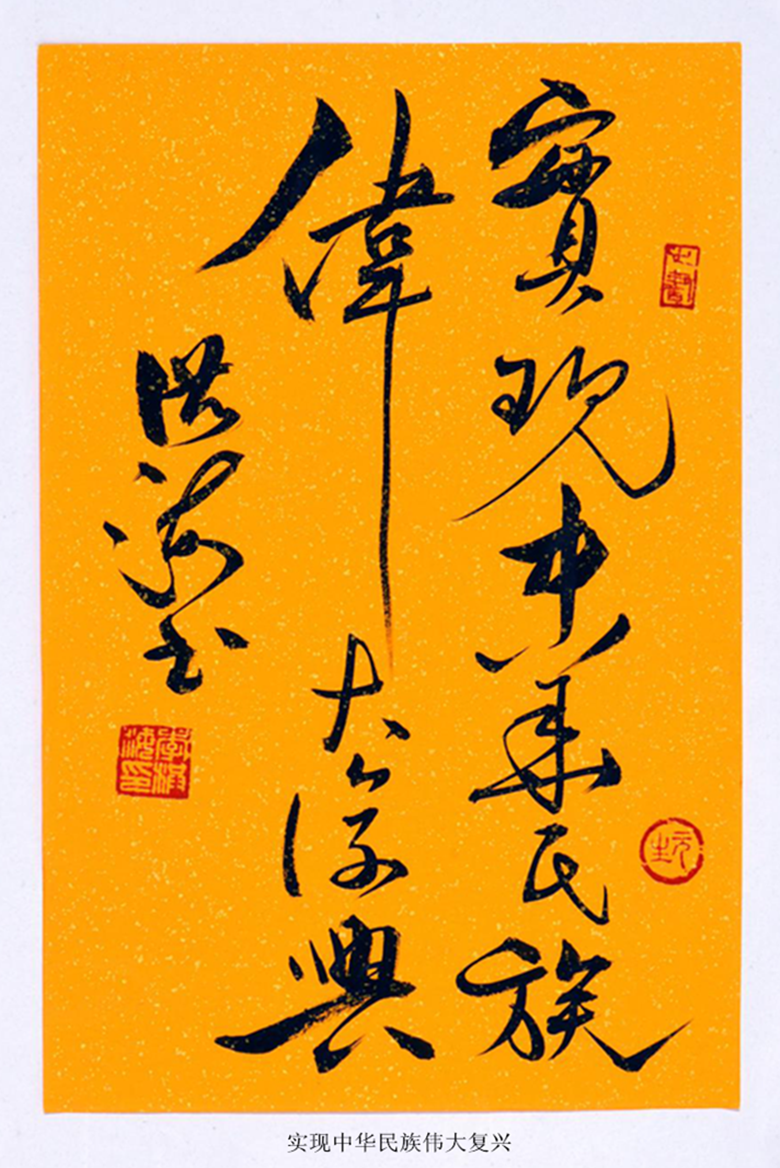 實現中華民族
偉大復興
海书
实现中华民族伟大复兴